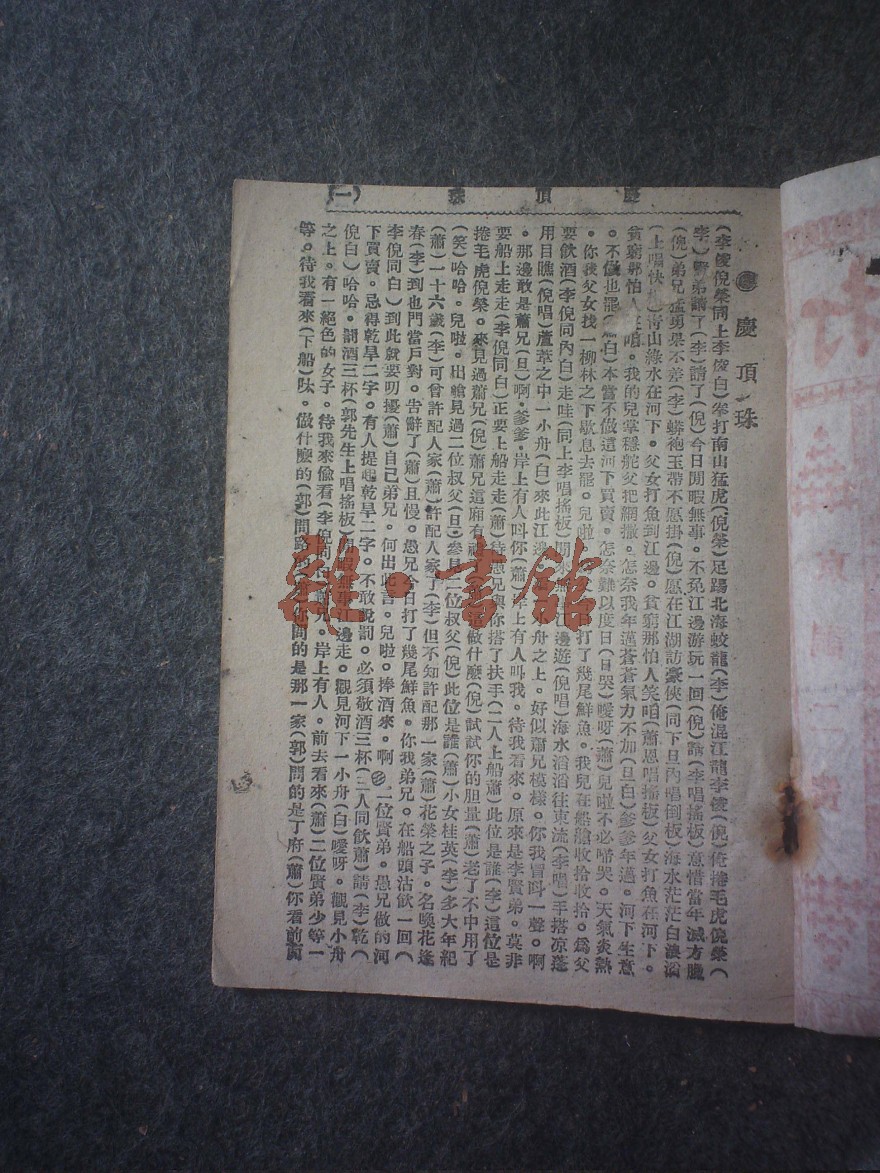 慶頂珠 (一)
慶頂珠
(李俊倪榮同上李俊白)拳打南山猛虎(倪榮)足踢北海蛟龍(李)俺混江龍李俊(倪)俺捲毛虎倪榮(
李)賢弟請了(李)請了(倪)今日閒暇無事。不免江邊游玩一回(倪)請(李唱搖板)意惜當年滅方臘
(倪)弟兄猛勇果不差(李)蟒袍玉帶不愿掛(倪)愿在江湖訪豪俠(同下旦內唱倒板)海水茫茫白浪滔
(上唱快板)青山綠水在河下。父女打魚到江邊。貧窮那怕人笑咱(蕭恩唱搖板)父女打魚在河下。
貧窮那怕人笑咱。我的兒掌穩舵父把網撒。怎奈我年邁蒼蒼氣力不加(旦白)爹爹年邁。河下生意
。不做也罷(蕭白)本當不做這河下買賣。怎奈難以度日(旦哭)噯呀(蕭)兒啦不必啼哭。天氣炎熱
。你我父女找一柳林之下歇息去罷。兒啦 打了幾尾鮮魚。我兒在船艙收拾收拾。為父
要飲酒(李倪同內白)走哇(同上李唱搖板)閒來 江邊遊(倪唱)海水滔滔往東流(李唱)手搭凉蓬
用目瞧(倪唱)蘆葦之中一小舟(白)來此江邊 小舟之上。好似蕭兄模樣。你我冒叫一聲。啊
。那邊敢是蕭兄(旦)啊。爹爹。岸上有人叫你(蕭)岸上有人叫我。待我看來。原來是李賢弟。莫非
要船上走走(李倪同白)正要上船走走(蕭)待愚兄與你搭了扶手(二人上船蕭)此位是誰(李)這位是
捲毛虎倪榮。來見過蕭兄(倪)蕭兄這廂有禮 這做什麼(倪)試試你的胆量(蕭)老了不中用了
(笑)哈哈。兒啦。出艙見過二位叔父(旦)參見二位叔父(倪)此位是誰(蕭)小女桂英(李)多大年紀
(蕭)一十六歲(李)可曾許配人家(蕭)許配人家了(李)但不知許配那一家(蕭)花榮之子。名喚花逢
春(李)到也門當戶對。告辭了(蕭)且慢。愚兄今日打了幾尾鮮魚。你我弟兄。在船頭沽飲一回(
李倪同白)到此就要叨擾(蕭)自己弟兄。何出此言。兒啦。捧酒來。啊 二位賢弟。愚兄做的河
下買賣。忌得乾旱二字。有人提起乾旱二字。不敢說罰。必須敬酒三杯(三人同飲蕭)請(李)乾(
倪白)哈哈。罰酒三杯(郭先生上唱搖板)閒暇無事江邊走。觀見河下一小舟(白)噯呀。觀見小舟
之上。有一絕色的女子。待我來偷看(李倪同白)蕭兄。岸上有人。前去看來(蕭)二位賢弟少等一
等。待我看來(下船)呔。做什麼的(郭)問路的(蕭)你問的是那一家(郭)問的是丁府(蕭)你看前面
雜·書館
京調